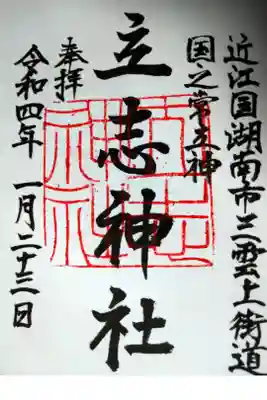 近江国湖南市三雲上街道
国之常立神
立志神社
奉拝
令和四年 一月二十三日